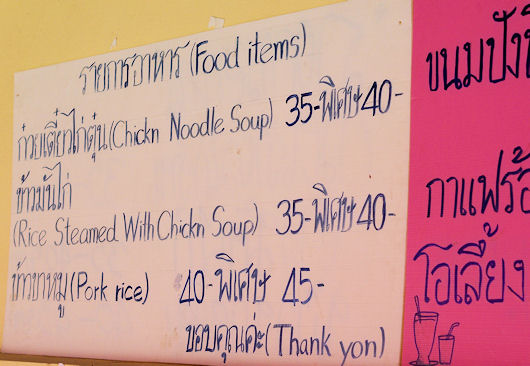 รายการอาหาร (Food items)
ก๋วยเตี๋ยวไก่ตุ๋น (Chickn Noodle Soup) 35-พิเศษ 40-
ข้าวมันไก่
(Rice Steamed With Chickn Soup) 35-พิเศษ 40-
ข้าวขาหมู (Pork rice) 40-พิเศษ 45-
ขอบคุณค่ะ (Thank yon)
ขนมปัง
กาแฟร้อ
โอเลี้ยง